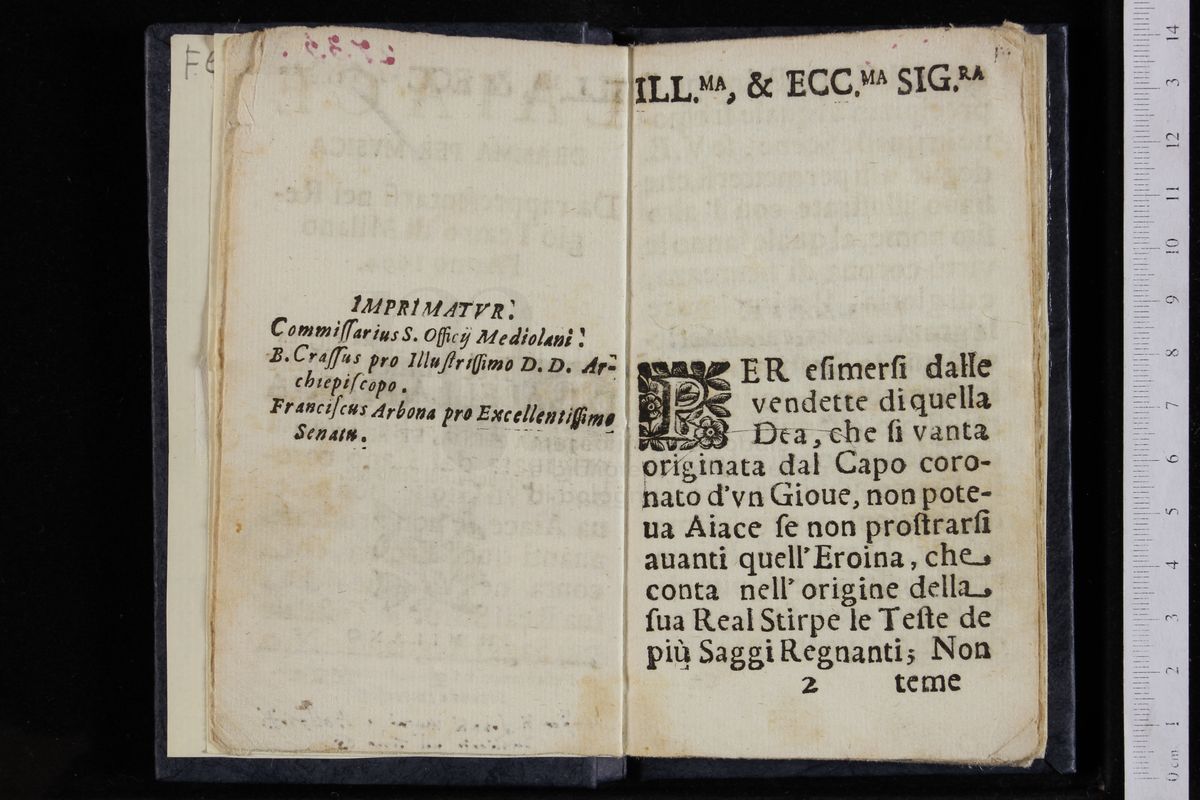 F6
IMPRIMATVR.
Commiſſarius S. Officij Mediolani.
B. Craſſus pro Illuſtriſſimo D. D. Ar-
chiepiſcopo.
Franciſcus Arbona pro Excellentiſſimo
Senatu.
ILL.MA, & ECC.MA SIG.RA
PER eſimerſi dalle
vendette di quella
Dea, che ſi vanta
originata dal Capo coro-
nato d'vn Gioue, non pote-
ua Aiace ſe non proſtrarſi
auanti quell'Eroina, che
conta nell'origine della
ſua Real Stirpe le Teſte de
più Saggi Regnanti; Non
2 teme
14
13
12
11
10
9
8
7
6
5
4
3
2
1
0 cm